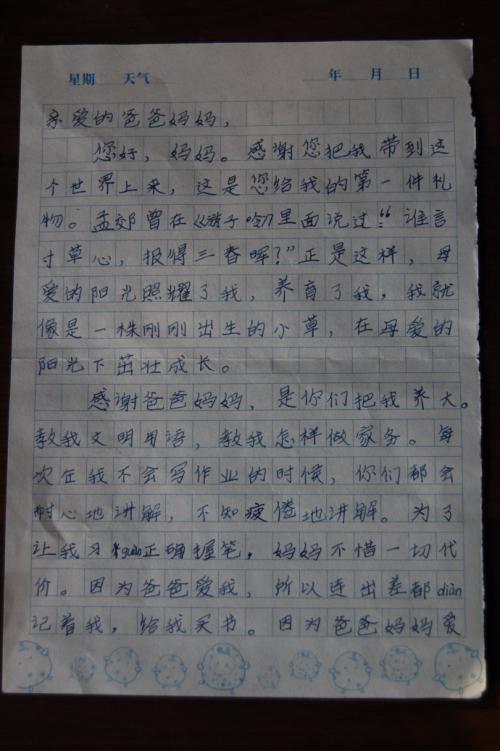 星期 天气 年 月 日
亲爱的爸爸妈妈,
您好,妈妈。感谢您把我带到这
个世界上来,这是您给我的第一件礼
物。孟郊曾在《游子吟》里面说过:“谁言
寸草心,报得三春晖?”正是这样,母
爱的阳光照耀了我,养育了我,我就
像是一株刚刚出生的小草,在母爱的
阳光下茁壮成长。
感谢爸爸妈妈,是你们把我养大。
教我文明用语,教我怎样做家务。每
次在我不会写作业的时候,你们都会
耐心地讲解,不知疲倦地讲解。为了
让我习guàn正确握笔,妈妈不惜一切代
价。因为爸爸爱我,所以连出差都diàn
记着我,给我买书。因为爸爸妈妈爱